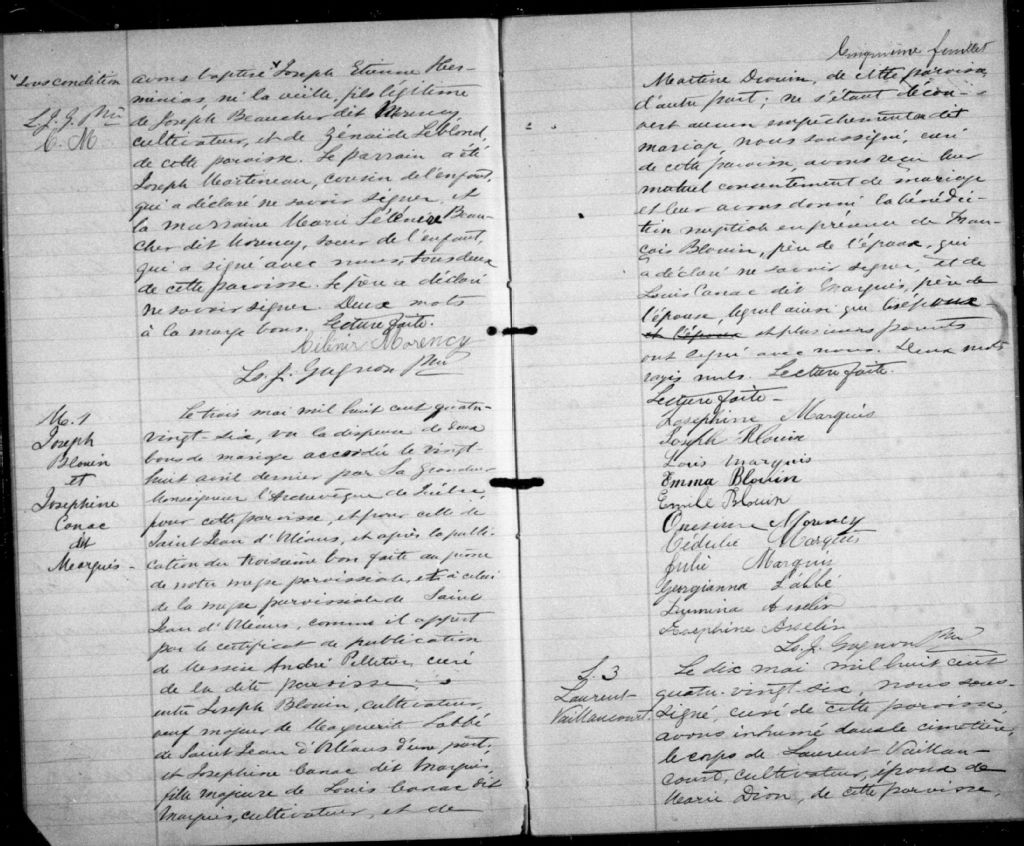 "sous condition
L. J. G. Ptre
C. M
avons baptisé " Joseph Etienne Her-
minias, né la veille, fils légitime
de Joseph Beaucher dit Morency,
cultivateur, et de Zénaïde Leblond,
de cette paroisse. Le parrain a été
Joseph Martineau, cousin de l'enfant,
qui a déclaré ne savoir signer, et
la marraine Marie Célenire Beau-
cher dit Morency, soeur de l'enfant,
qui a signé avec nous, tous deux
de cette paroisse. Le père a déclaré
ne savoir signer. Deux mots
à la marge bons. Lecture faite.
Célenir Morency
Ls. J. Gagnon Ptre
M. 1
Joseph
Blouin
et
Josephine
Canac
dit
Marquis -
Le trois mai mil huit cent quatre-
vingt-six, vu la dispense de deux
bans de mariage accordée le vingt-
huit avril dernier par Sa Grandeur
Monseigneur l'Archevêque de Québec,
pour cette paroisse, et pour celle de
Saint Jean d'Orléans, et après la publi-
cation du troisième ban faite au prône
de notre messe paroissiale, et à celui
de la messe paroissiale de Saint
Jean d'Orléans, comme il appert
par le certificat de publication
de Messire André Pelletier, curé
de la dite paroisse;
entre Joseph Blouin, cultivateur,
veuf majeur de Marguerite Labbé
de Saint Jean d'Orléans d'une part;
et Josephine Canac dit Marquis,
fille majeure de Louis Canac dit
Marquis, cultivateur, et de
Cinquième feuillet
Martine Drouin, de cette paroisse,
d'autre part; ne s'étant décou-
vert aucun empêchement au dit
mariage, nous soussigné, curé
de cette paroisse, avons reçu leur
mutuel consentement de mariage
et leur avons donné la bénédic-
tion nuptiale en présence de Fran-
çois Blouin, père de l'époux, qui
a déclaré ne savoir signer, et de
Louis Canac dit Marquis, père de
l'épouse, lequel ainsi que les époux
et l'épouse et plusieurs parents
ont signé avec nous. Deux mots
rayés nuls. Lecture faite.
Lecture faite -
Josephine Marquis
Joseph Blouin
Louis Marquis
Emma Blouin
Emile Blouin
Onesime Morency
Cédulie Marquis
Julie Marquis
Georgianna Labbé
Lumina Asselin
Josephine Asselin
Ls. J. Gagnon Ptre
S. 3
Laurent
Vaillancourt.
Le dix mai mil huit cent
quatre-vingt-six, nous sous-
signé, curé de cette paroisse,
avons inhumé dans le cimetière,
le corps de Laurent Vaillan-
court, cultivateur, époux de
Marie Dion, de cette paroisse,